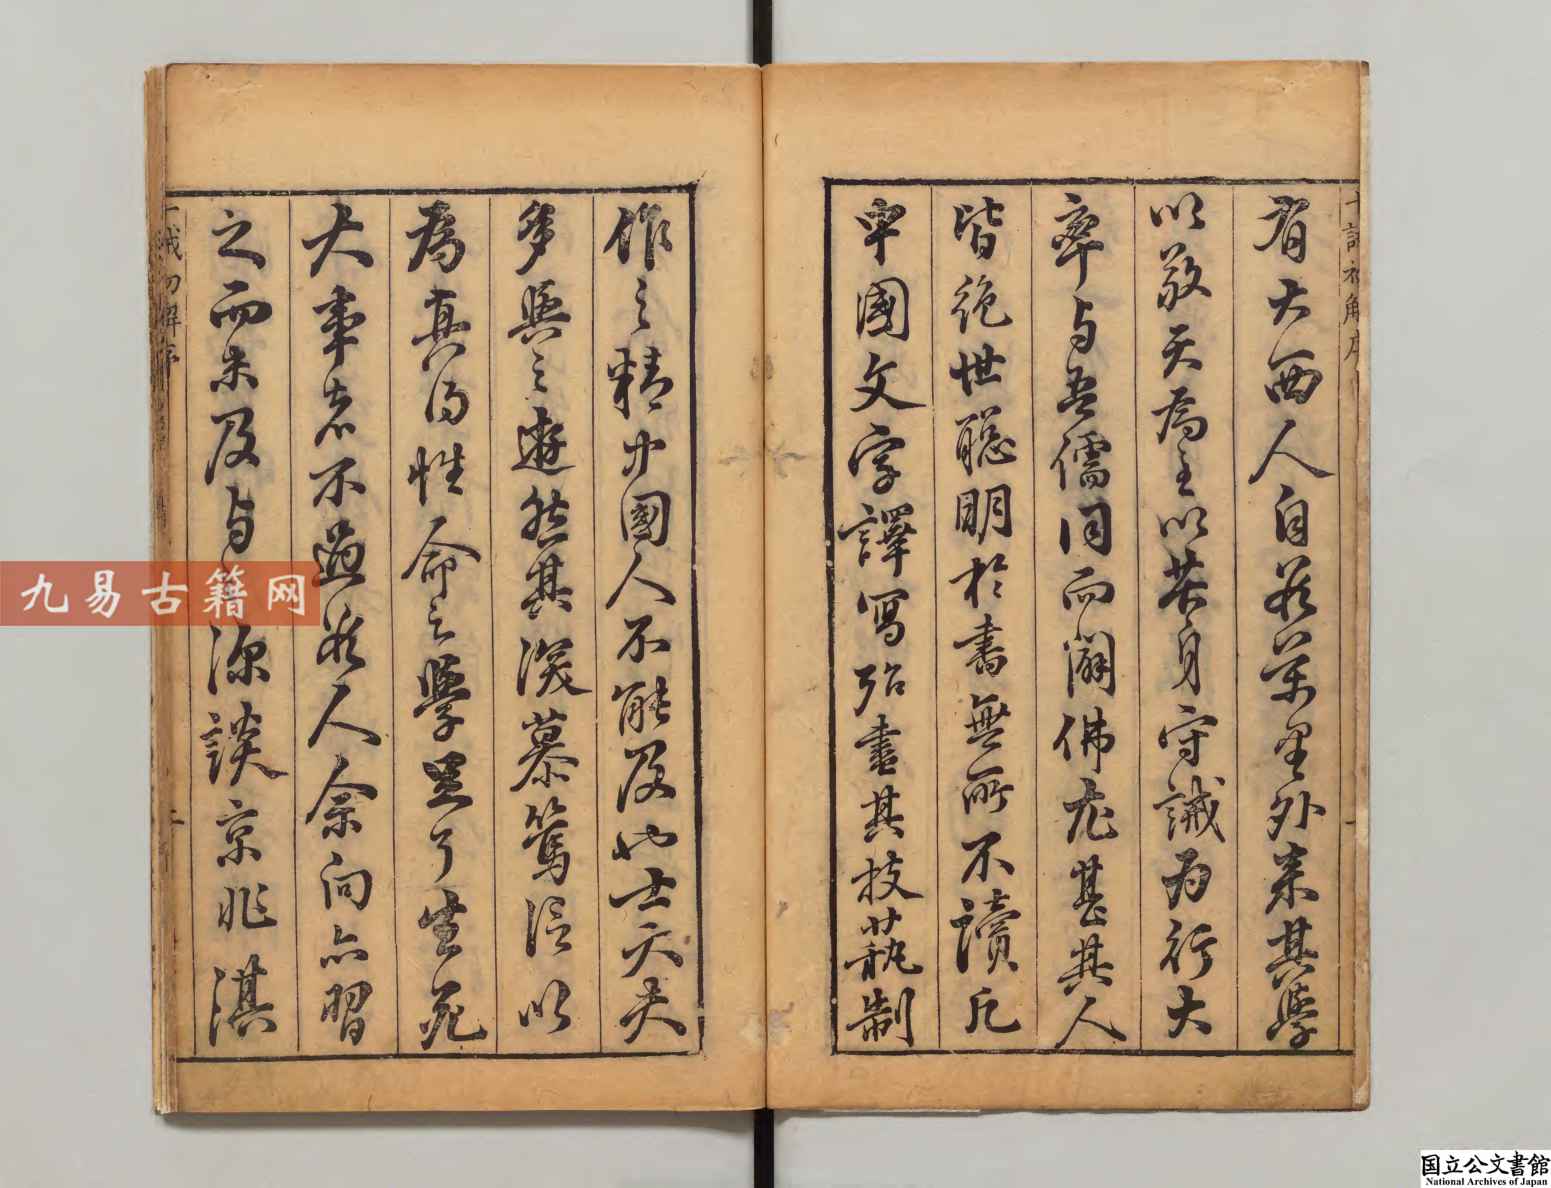 十誡初解序
有大西人自萬里外来其學
以敬天為主以苦身守誡為行大
率与吾儒同而闢佛尤甚其人
皆絶世聰明於書無所不讀凡
中國文字譯寫殆盡其技藝制
作之精中國人不能及也士大夫
多與之遊然其深慕篤信以
為真得性命之學足了生死
大事者不過人余向亦習
之而未及与深談京兆淇
誡初解序 二
九易古籍网
国立公文書館
National Archives of Japan